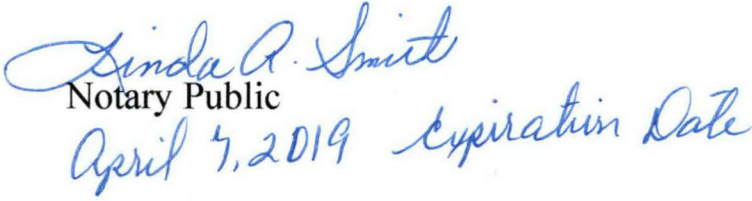 Linda A. Smith
Notary Public
April 7, 2019 Expiration Date